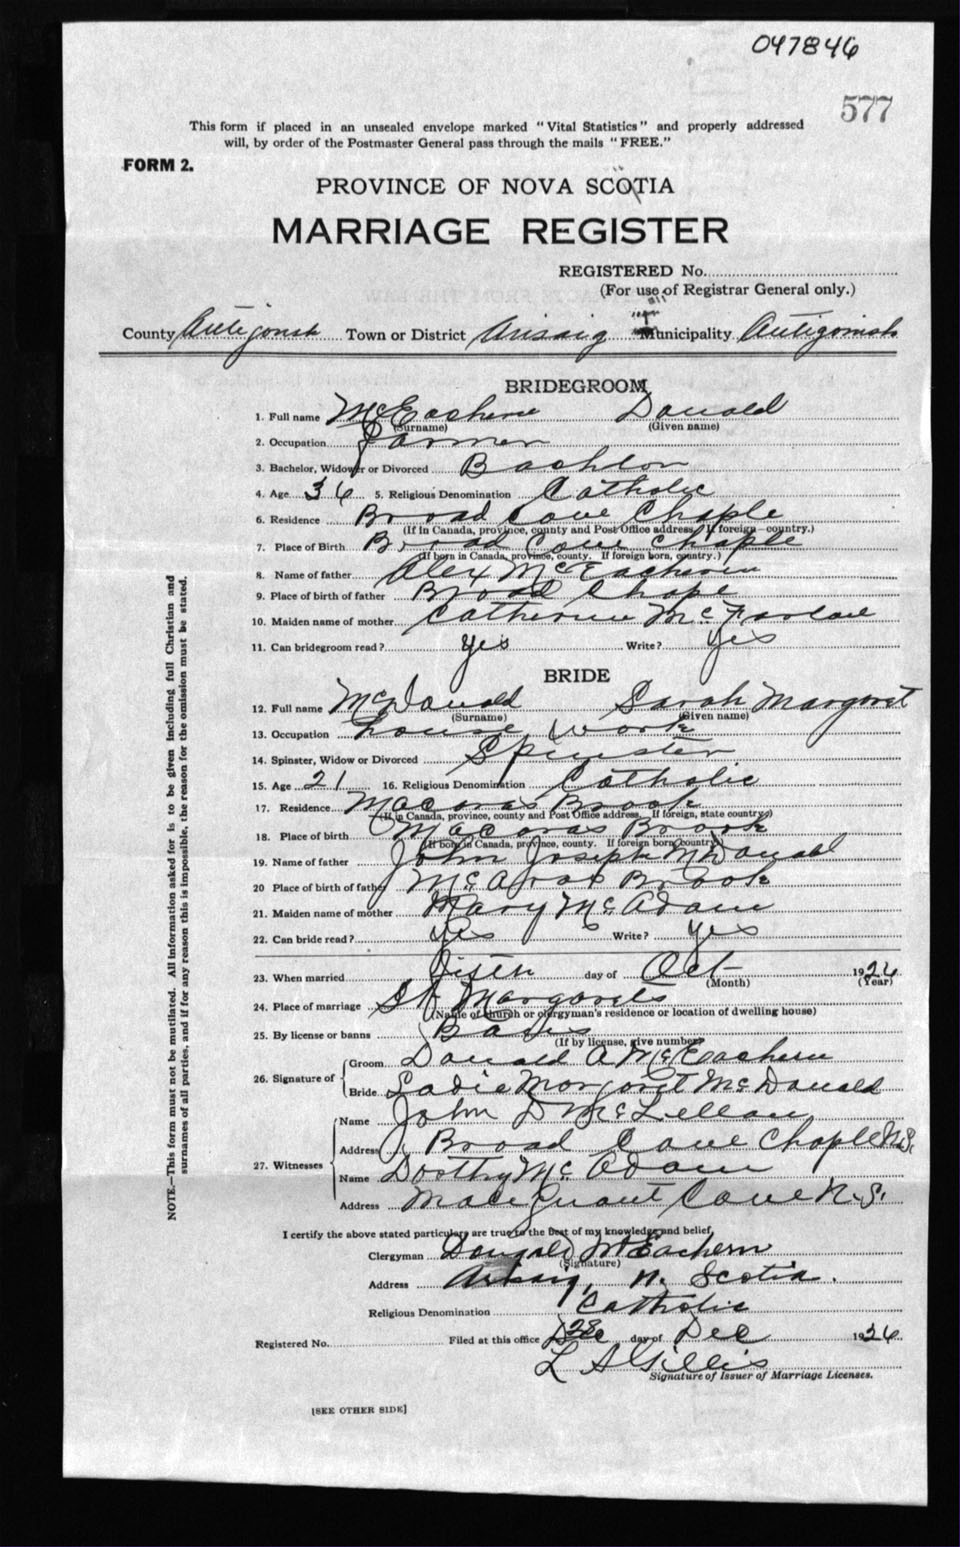 047846
577
This form if placed in an unsealed envelope marked "Vital Statistics" and properly addressed
will, by order of the Postmaster General pass through the mails "FREE."
FORM 2.
PROVINCE OF NOVA SCOTIA
MARRIAGE REGISTER
REGISTERED No.
(For use of Registrar General only.)
County Antigonish Town or District Arisaig Municipality Antigonish
BRIDEGROOM
1. Full name McEachern Donald
(Surname) (Given name)
2. Occupation Farmer
3. Bachelor, Widower or Divorced Bachlor
4. Age 36 5. Religious Denomination Catholic
6. Residence Broad Cove Chaple
(If in Canada, province, county and Post Office address. If foreign—country.)
7. Place of Birth Broad Cove Chaple
(If born in Canada, province, county. If foreign born, country.)
8. Name of father Alex McEachern
9. Place of birth of father Broad Chape
10. Maiden name of mother Catherine McFarlane
11. Can bridegroom read? yes Write? yes
BRIDE
12. Full name McDonald Sarah Margaret
(Surname) (Given name)
13. Occupation House Work
14. Spinster, Widow or Divorced Spinster
15. Age 21 16. Religious Denomination Catholic
17. Residence Macaras Brook
(If in Canada, province, county and Post Office address. If foreign, state country.)
18. Place of birth Macaras Brook
(If born in Canada, province, county. If foreign born country.)
19. Name of father John Joseph McDonald
20 Place of birth of father McAras Brook
21. Maiden name of mother Mary McAdam
22. Can bride read? Yes Write? yes
23. When married day of Oct 1926
(Month) (Year)
24. Place of marriage St Margarets
(Name of church or clergyman's residence or location of dwelling house)
25. By license or banns
(If by license, give number)
26. Signature of
Groom Donald A McEachern
Bride Sadie Margaret McDonald
27. Witnesses
Name John D McLellan
Address Broad Cove Chaple N.S.
Name Dorthy McAdam
Address Cove N.S.
I certify the above stated particulars are true to the best of my knowledge and belief,
Clergyman Dougald McEachern
(Signature)
Address Arisaig, N. Scotia.
Religious Denomination Catholic
Registered No. Filed at this office 28 day of Dec 1926.
L S Gillis
Signature of Issuer of Marriage Licenses.
[SEE OTHER SIDE]
NOTE.—This form must not be mutilated. All information asked for is to be given including full Christian and
surnames of all parties, and if for any reason this is impossible, the reason for the omission must be stated.